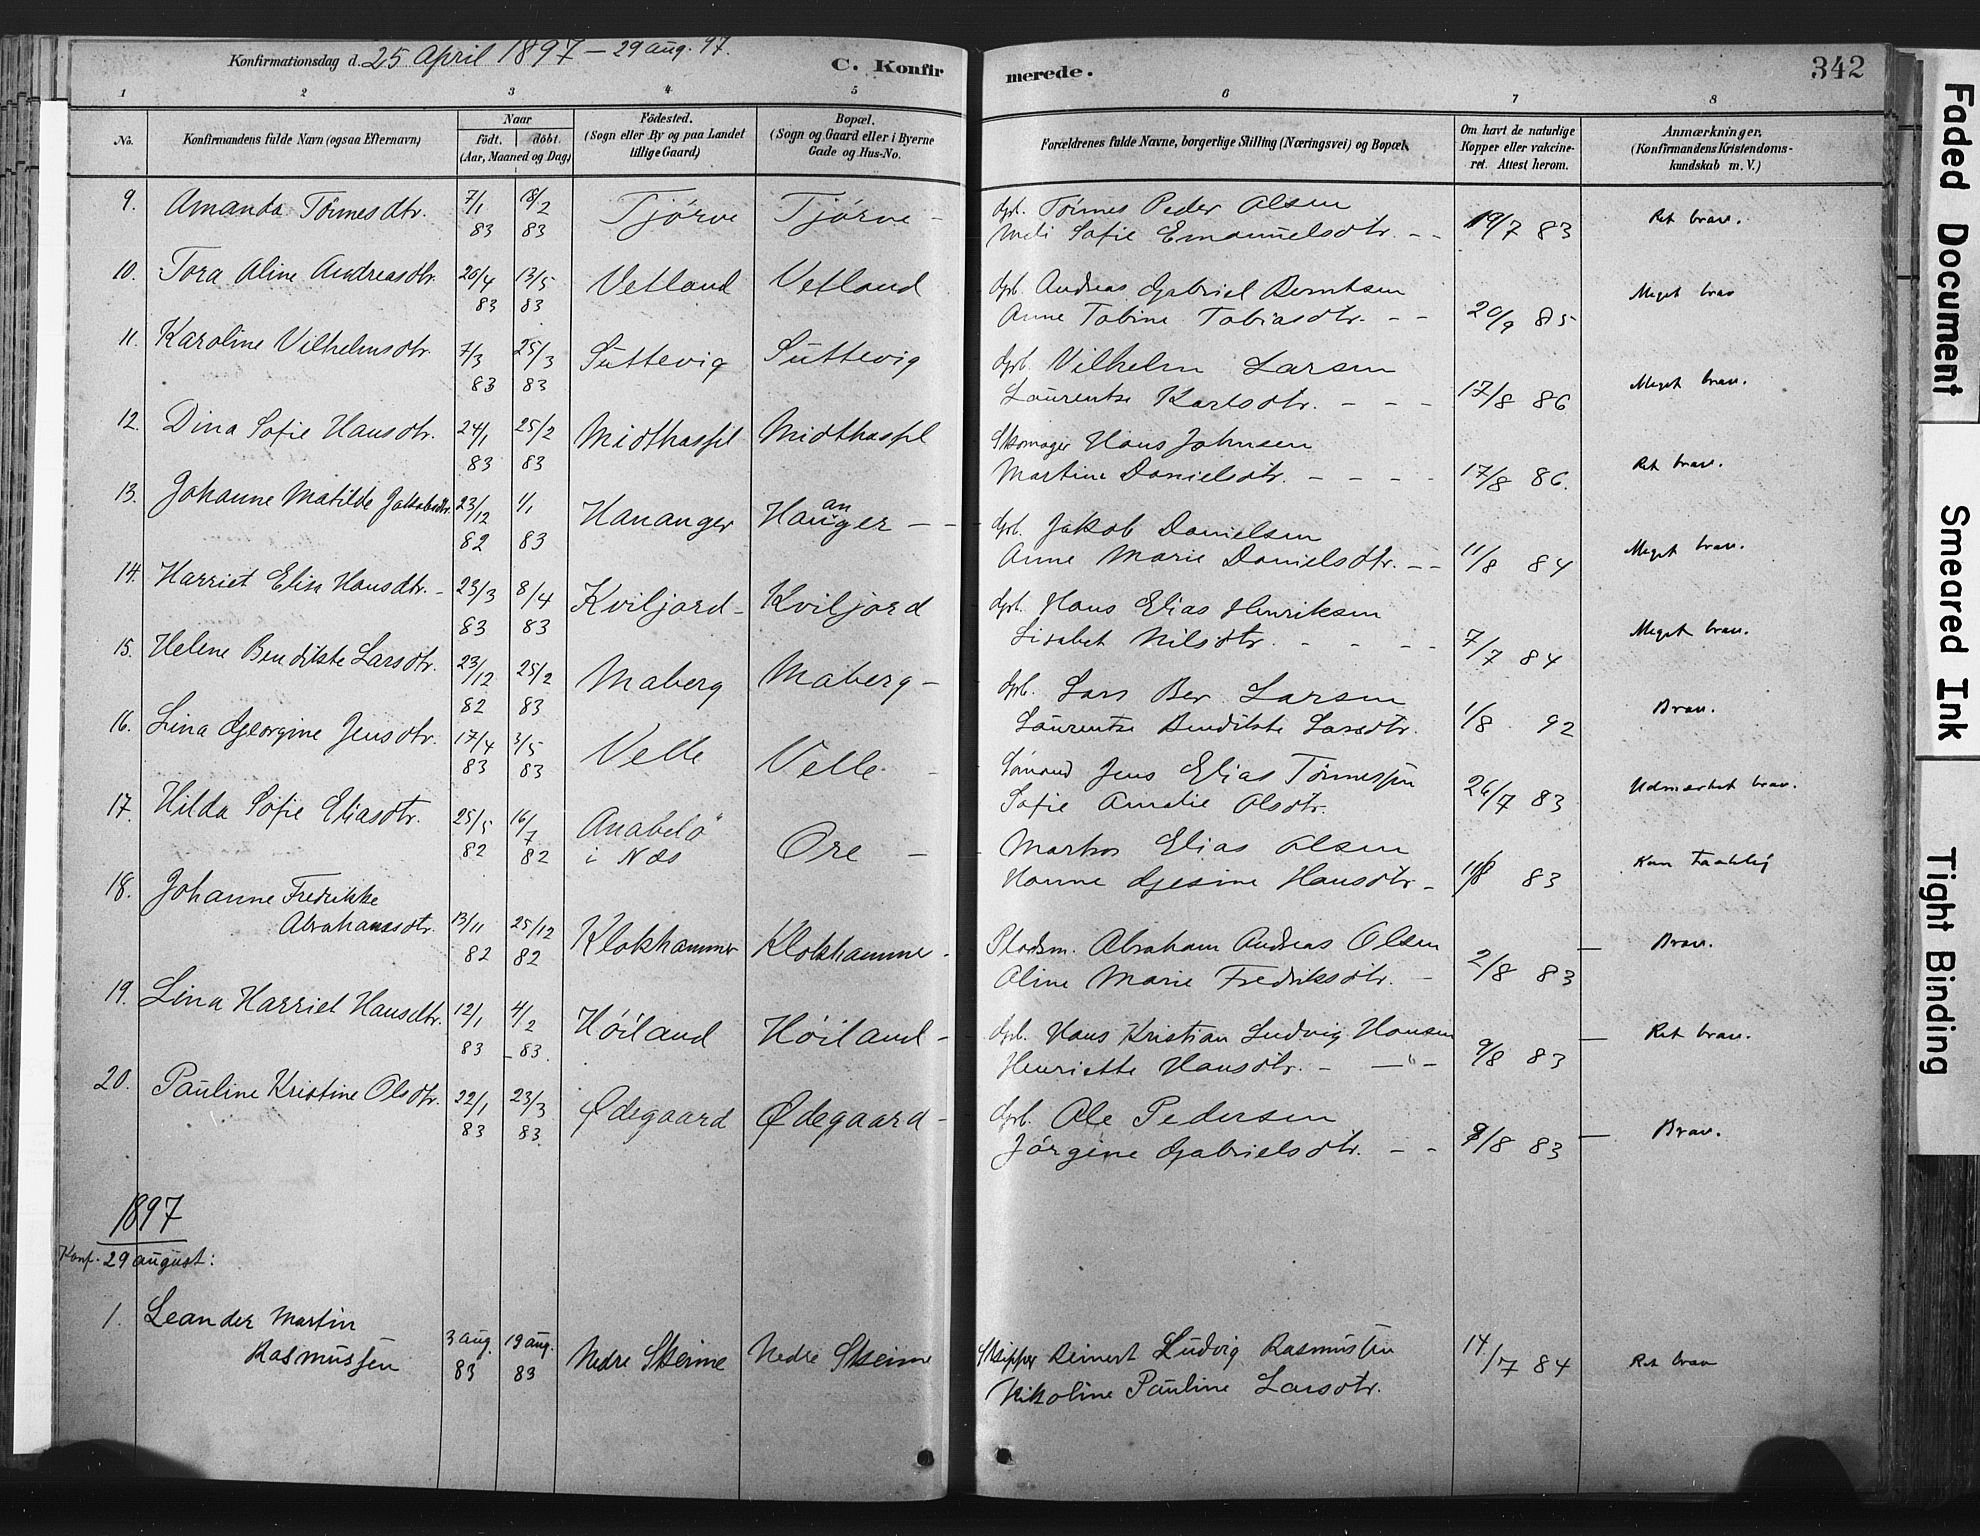 Konfirmationsdag d. 25 April 1897 – 29 aug. 97.
C. Konfirmerede.
342
1 2 3 4 5 6 7 8
No.
Konfirmandens fulde Navn (ogsaa Efternavn)
Naar
födt. döbt.
(Aar, Maaned og Dag)
Födested.
(Sogn eller By og paa Landet
tillige Gaard)
Bopæl.
(Sogn og Gaard eller i Byerne
Gade og Hus-No.
Forældrenes fulde Navne, borgerlige Stilling (Næringsvei) og Bopæl.
Om havt de naturlige
Kopper eller vakcine-
ret. Attest herom.
Anmærkninger.
(Konfirmandens Kristendoms-
kundskab m. V.)
9. Amanda Tönnesdtr. 7/1 83 18/2 83 Tjörve Tjörve - Gbr. Tönnes Peder Olsen
Sofie Emanuelsdtr. - - 19/7 83 Ret brav.
10. Tora Aline Andreasdtr. 20/4 83 13/5 83 Vetland Vetland Gbr. Andreas Gabriel Berntsen
Anne Tobine Tobiasdtr. - - 20/9 85 Meget brav
11. Karoline Vilhelmsdtr. 7/3 83 25/3 83 Suttevig Suttevig Gbr. Vilhelm Larsen
Laurentse Karlsdtr. - - - 17/8 86 Meget brav.
12. Dina Sofie Hansdtr. 24/1 83 25/2 83 Midthassel Midthassel Skomager Hans Johnsen
Martine Danielsdtr. - - - - 17/8 86. Ret brav.
13. Johanne Matilde Jakobsdtr. 23/12 82 1/1 83 Hananger Hananger - - Gbr. Jakob Danielsen
Anne Marie Danielsdtr. - - 11/8 84 Meget brav.
14. Harriet Elise Hansdtr. - 23/3 83 8/4 83 Kviljord - Kviljord Gbr. Hans Elias Henriksen
Lisabet Nilsdtr. - - - - 7/7 84 Meget brav.
15. Helene Bendikte Larsdtr. 23/12 82 25/2 83 Maberg Maberg - Gbr. Lars Ber Larsen
Laurentse Bendikte Larsdtr. 1/8 92 Brav.
16. Lina Georgine Jensdtr. 17/4 83 3/5 83 Velle Velle - Sömand Jens Elias Tönnessen
Sofie Amalie Olsdtr. 26/7 83 Udmærket brav.
17. Hilda Sofie Eliasdtr. 25/5 82 16/7 82 Anabelö
i Næs Ore - Markus Elias Olsen
Hanne Gjesine Hansdtr. - 83 Kun taalelig
18. Johanne Fredrikke
Abrahamsdtr. 13/11 82 25/12 82 Klokhammer Klokhammer - Pladsm. Abraham Andreas Olsen
Aline Marie Fredriksdtr. - 2/8 83 Brav.
19. Lina Harriet Hansdtr. 12/1 83 4/2 83. Höiland Höiland - Gbr. Hans Kristian Ludvig Hansen
Henriette Hansdtr. - — " - 9/8 83 Ret brav.
20. Pauline Kristine Olsdtr. 22/1 83 23/3 83 Ødegaard Ødegaard - Gbr. Ole Pedersen
Jörgine Gabrielsdtr. - - 9/8 83 Brav.
1897
Konf. 29 august:
1. Leander Martin
Rasmussen 3 aug. 83 19 aug. 83 Nedre Skeime Nedre Skeime Skipper Reinert Ludvig Rasmussen
Nikoline Pauline Larsdtr. 14/7 84 Ret brav
Faded Document
Smeared Ink
Tight Binding